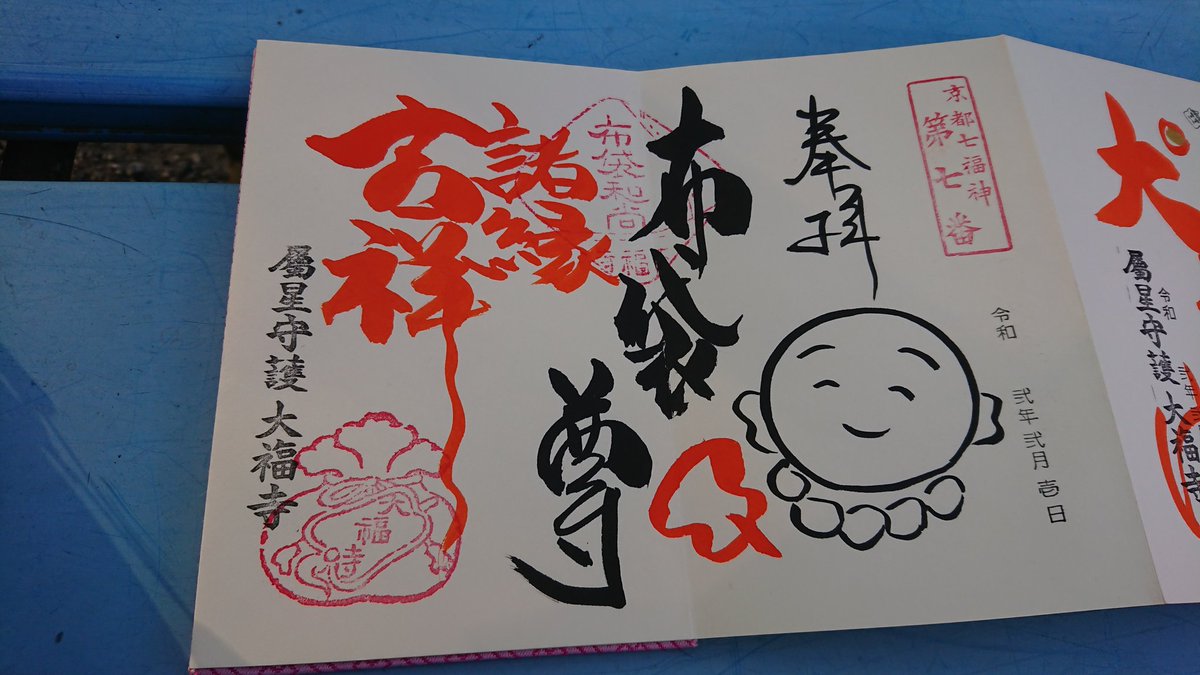 京都七福神
第七番
奉拝
令和 弐年 弐月 壱日
布袋尊
布袋和尚
諸縁
吉祥
屬星守護 大福寺
大福寺
令和
屬星守護 大福寺